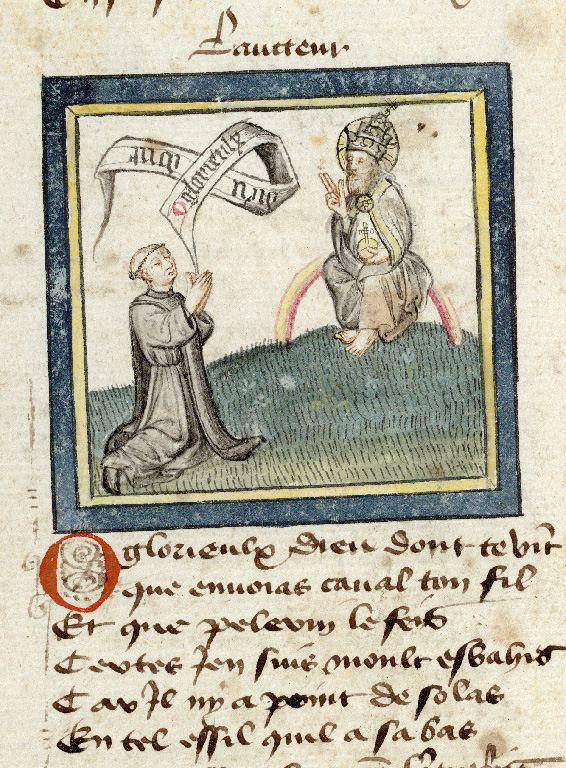 Laucteur
O glorieulx
O glorieulx dieu dont te vit
que enuoias caual ton fil
Et que pelerin le feis
Certes Jen suis moult esbahis
Car Jl ny a point de solas
En tel essil quil a sa bas